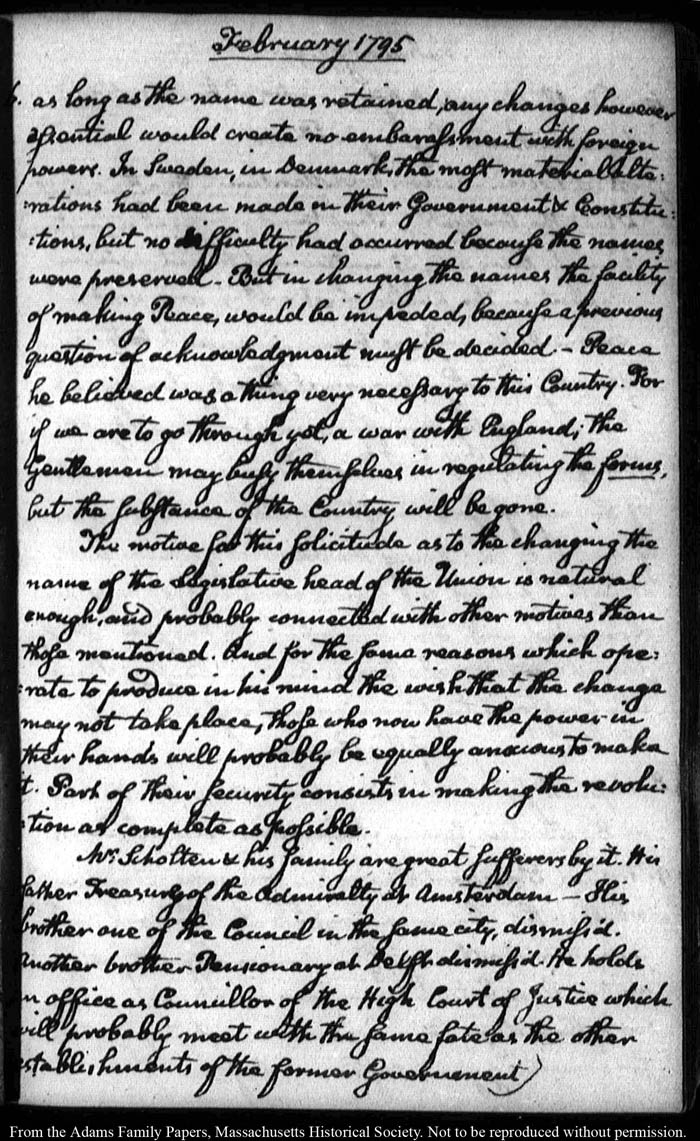 February 1795
6. as long as the name was retained, any changes however
essential would create no embarassment with foreign
powers. In Sweden, in Denmark, the most material alte:
:rations had been made in their Government & Constitu:
:tions, but no difficulty had occurred because the names
were preserved — But in changing the names the facility
of making Peace, would be impeded, because a previous
question of acknowledgment must be decided. — Peace
he believed was a thing very necessary to this Country. For
if we are to go through yet, a war with England; the
Gentlemen may busy themselves in regulating the forms,
but the substance of the Country will be gone.
The motive for this solicitude as to the changing the
name of the Legislative head of the Union is natural
enough, and probably connected with other motives than
those mentioned. And for the same reasons which ope:
:rate to produce in his mind the wish that the change
may not take place, those who now have the power in
their hands will probably be equally anxious to make
it. Part of their security consists in making the revolu:
:tion as complete as possible.
Mr. Scholten & his family are great sufferers by it. His
father Treasurer of the Admiralty at Amsterdam — His
brother one of the Council in the same city, dismiss'd.
Another brother Pensionary at Delft dismiss'd. He holds
an office as Councillor of the High Court of Justice which
will probably meet with the same fate as the other
establishments of the former Government)
From the Adams Family Papers, Massachusetts Historical Society. Not to be reproduced without permission.